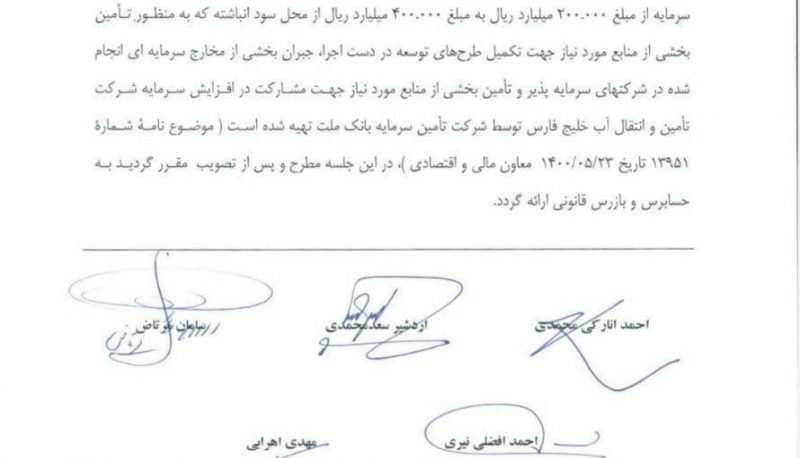 سرمایه از مبلغ ۲۰۰.۰۰۰ میلیارد ریال به مبلغ ۴۰۰.۰۰۰ میلیارد ریال از محل سود انباشته که به منظور تـأمین
بخشی از منابع مورد نیاز جهت تکمیل طرح‌های توسعه در دست اجرا، جبران بخشی از مخارج سرمایه ای انجام
شده در شرکتهای سرمایه پذیر و تأمین بخشی از منابع مورد نیاز جهـت مشـارکت در افـزایش سـرمایه شـرکت
تأمین و انتقال آب خلیج فارس توسط شرکت تأمین سرمایه بانک ملت تهیه شده است ( موضوع نامۀ شمارۀ
۱۳۹۵۱ تاریخ ۱۴۰۰/۰۵/۲۳ معاون مالی و اقتصادی )، در این جلسه مطرح و پس از تصویب مقـرر گردیـد بـه
حسابرس و بازرس قانونی ارائه گردد.
احمد انارکی محمدی
اردشیر سعدمحمدی
سامان پرتاض
احمد افضلی نیری
مهدی اهرابی